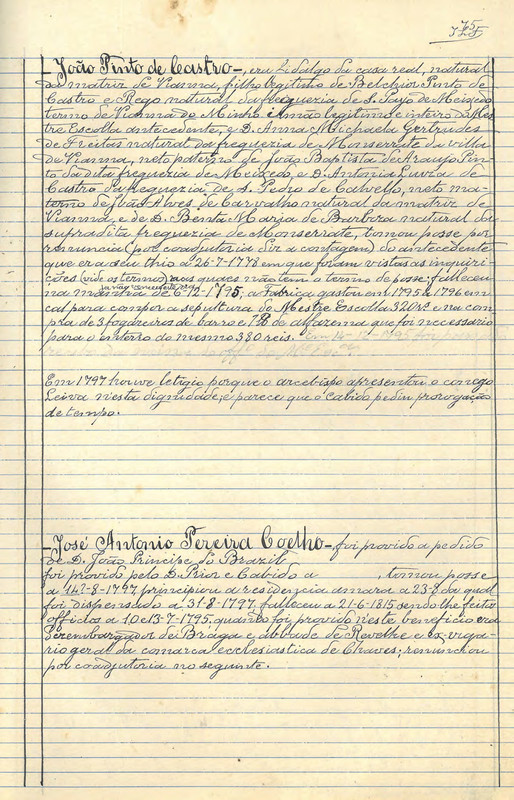 375
João Pinto de Castro -, era Fidalgo da casa real, natural
da matriz de Vianna, filho legitimo de Belchior Pinto de
Castro e Rego natural da freguezia de S. Payo de Meixedo
termo de Vianna do Minho e irmão legitimo e inteiro do Mes-
tre Escolla antecedente, e D. Anna Michaela Gertrudes
de Freitas natural da freguezia de Monserrate da villa
de Vianna, neto paterno de João Baptista de Araujo Pin-
to da dita freguezia de Meixedo, e D. Antonia Luiza de
Castro da freguezia de S. Pedro de Calvello, neto ma-
terno de João Alves de Carvalho natural da matriz de
Vianna, e de D. Benta Maria de Barboza natural da
supradita freguezia de Monserrate, tomou posse por
renuncia (por coadjutoria diz a contagem) do antecedente
que era seu thio a 26-7-1778 em que foram vistas as inquiri-
ções (vide os termos) aos quaes não tem o termo de posse; falleceu
na manhã de 6-12-1795, a Fabrica gastou em 1795 a 1796 em
cal para compor a sepultura do Mestre Escolla 320 rs. e na com-
pra de 3 fogareiros de barro e de alfazema que foi necessario
para o enterro do mesmo 380 reis.
Em 1797 houve letigio porque o arcebispo apresentou o conego
Leiva nesta dignidade, e parece que o Cabido pediu prorogação
de tempo.
José Antonio Pereira Coelho -, foi provido a pedido
de D. João Principe do Brazil
foi provido pelo D. Prior e Cabido a , tomou posse
a 14-8-1797, principiou a residencia amara a 23-8 da qual
foi dispensado a 31-8-1797, falleceu a 21-6-1815 sendo lhe feitos
officios a 10 e 13-7-1795, quando foi provido neste beneficio era
Dezembargador de Braga e abbade de Revelhe e ex-viga-
rio geral da comarca ecclesiastica de Chaves; renunciou
por coadjutoria no seguinte.